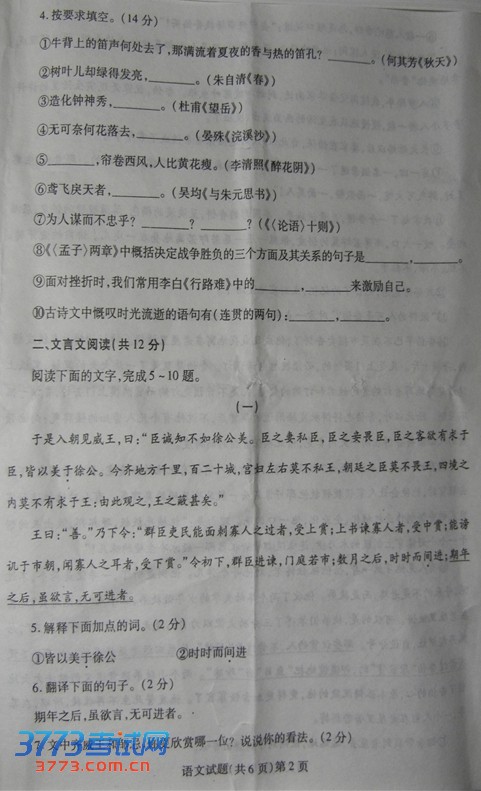 4.按要求填空。(14分)
①牛背上的笛声何处去了,那满流着夏夜的香与热的笛孔? ______。(何其芳《秋天》)
②树叶儿却绿得发亮,______。(朱自清《春》)
③造化钟神秀,______。(杜甫《望岳》)
④无可奈何花落去,______。(晏殊《浣溪沙》)
⑤______,帘卷西风,人比黄花瘦。(李清照《醉花阴》)
⑥鸢飞戾天者,______。(吴均《与朱元思书》)
⑦为人谋而不忠乎? ______? ______? (《〈论语〉十则》)
⑧《〈孟子〉两章》中概括决定战争胜负的三个方面及其关系的句子是______,______。
⑨面对挫折时,我们常用李白《行路难》中的______,______来激励自己。
⑩古诗文中慨叹时光流逝的语句有(连贯的两句):______,______。
二、文言文阅读(共12分)
阅读下面的文字,完成5~10题。
(一)
于是入朝见威王,曰:“臣诚知不如徐公美。臣之妻私臣,臣之妾畏臣,臣之客欲有求于
臣,皆以美于徐公。今齐地方千里,百二十城,宫妇左右莫不私王,朝廷之臣莫不畏王,四境之
内莫不有求于王:由此观之,王之蔽甚矣。”
王曰:“善。”乃下令:“群臣吏民能面刺寡人之过者,受上赏;上书谏寡人者,受中赏;能谤
讥于市朝,闻寡人之耳者,受下赏。”令初下,群臣进谏,门庭若市;数月之后,时时而间进;期年
之后,虽欲言,无可进者。
5.解释下面加点的词。(2分)
①皆以美于徐公 ②时时而间进
6.翻译下面的句子。(2分)
期年之后,虽欲言,无可进者。
7.文中 欣赏哪一位? 说说你的看法。(2分)
语文试题(共6页)第2页
3773考试网
3773.com.cn